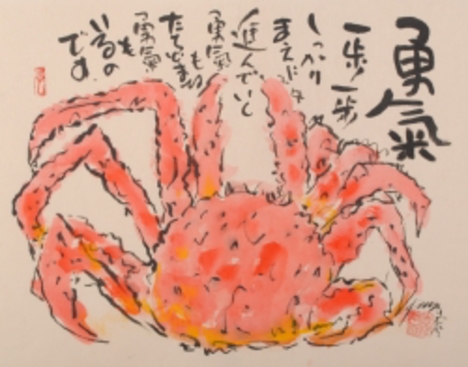 勇氣
一歩一歩
しっかり
まえに
進んでいく
勇氣も
たちどまる
勇氣も
いるの
です